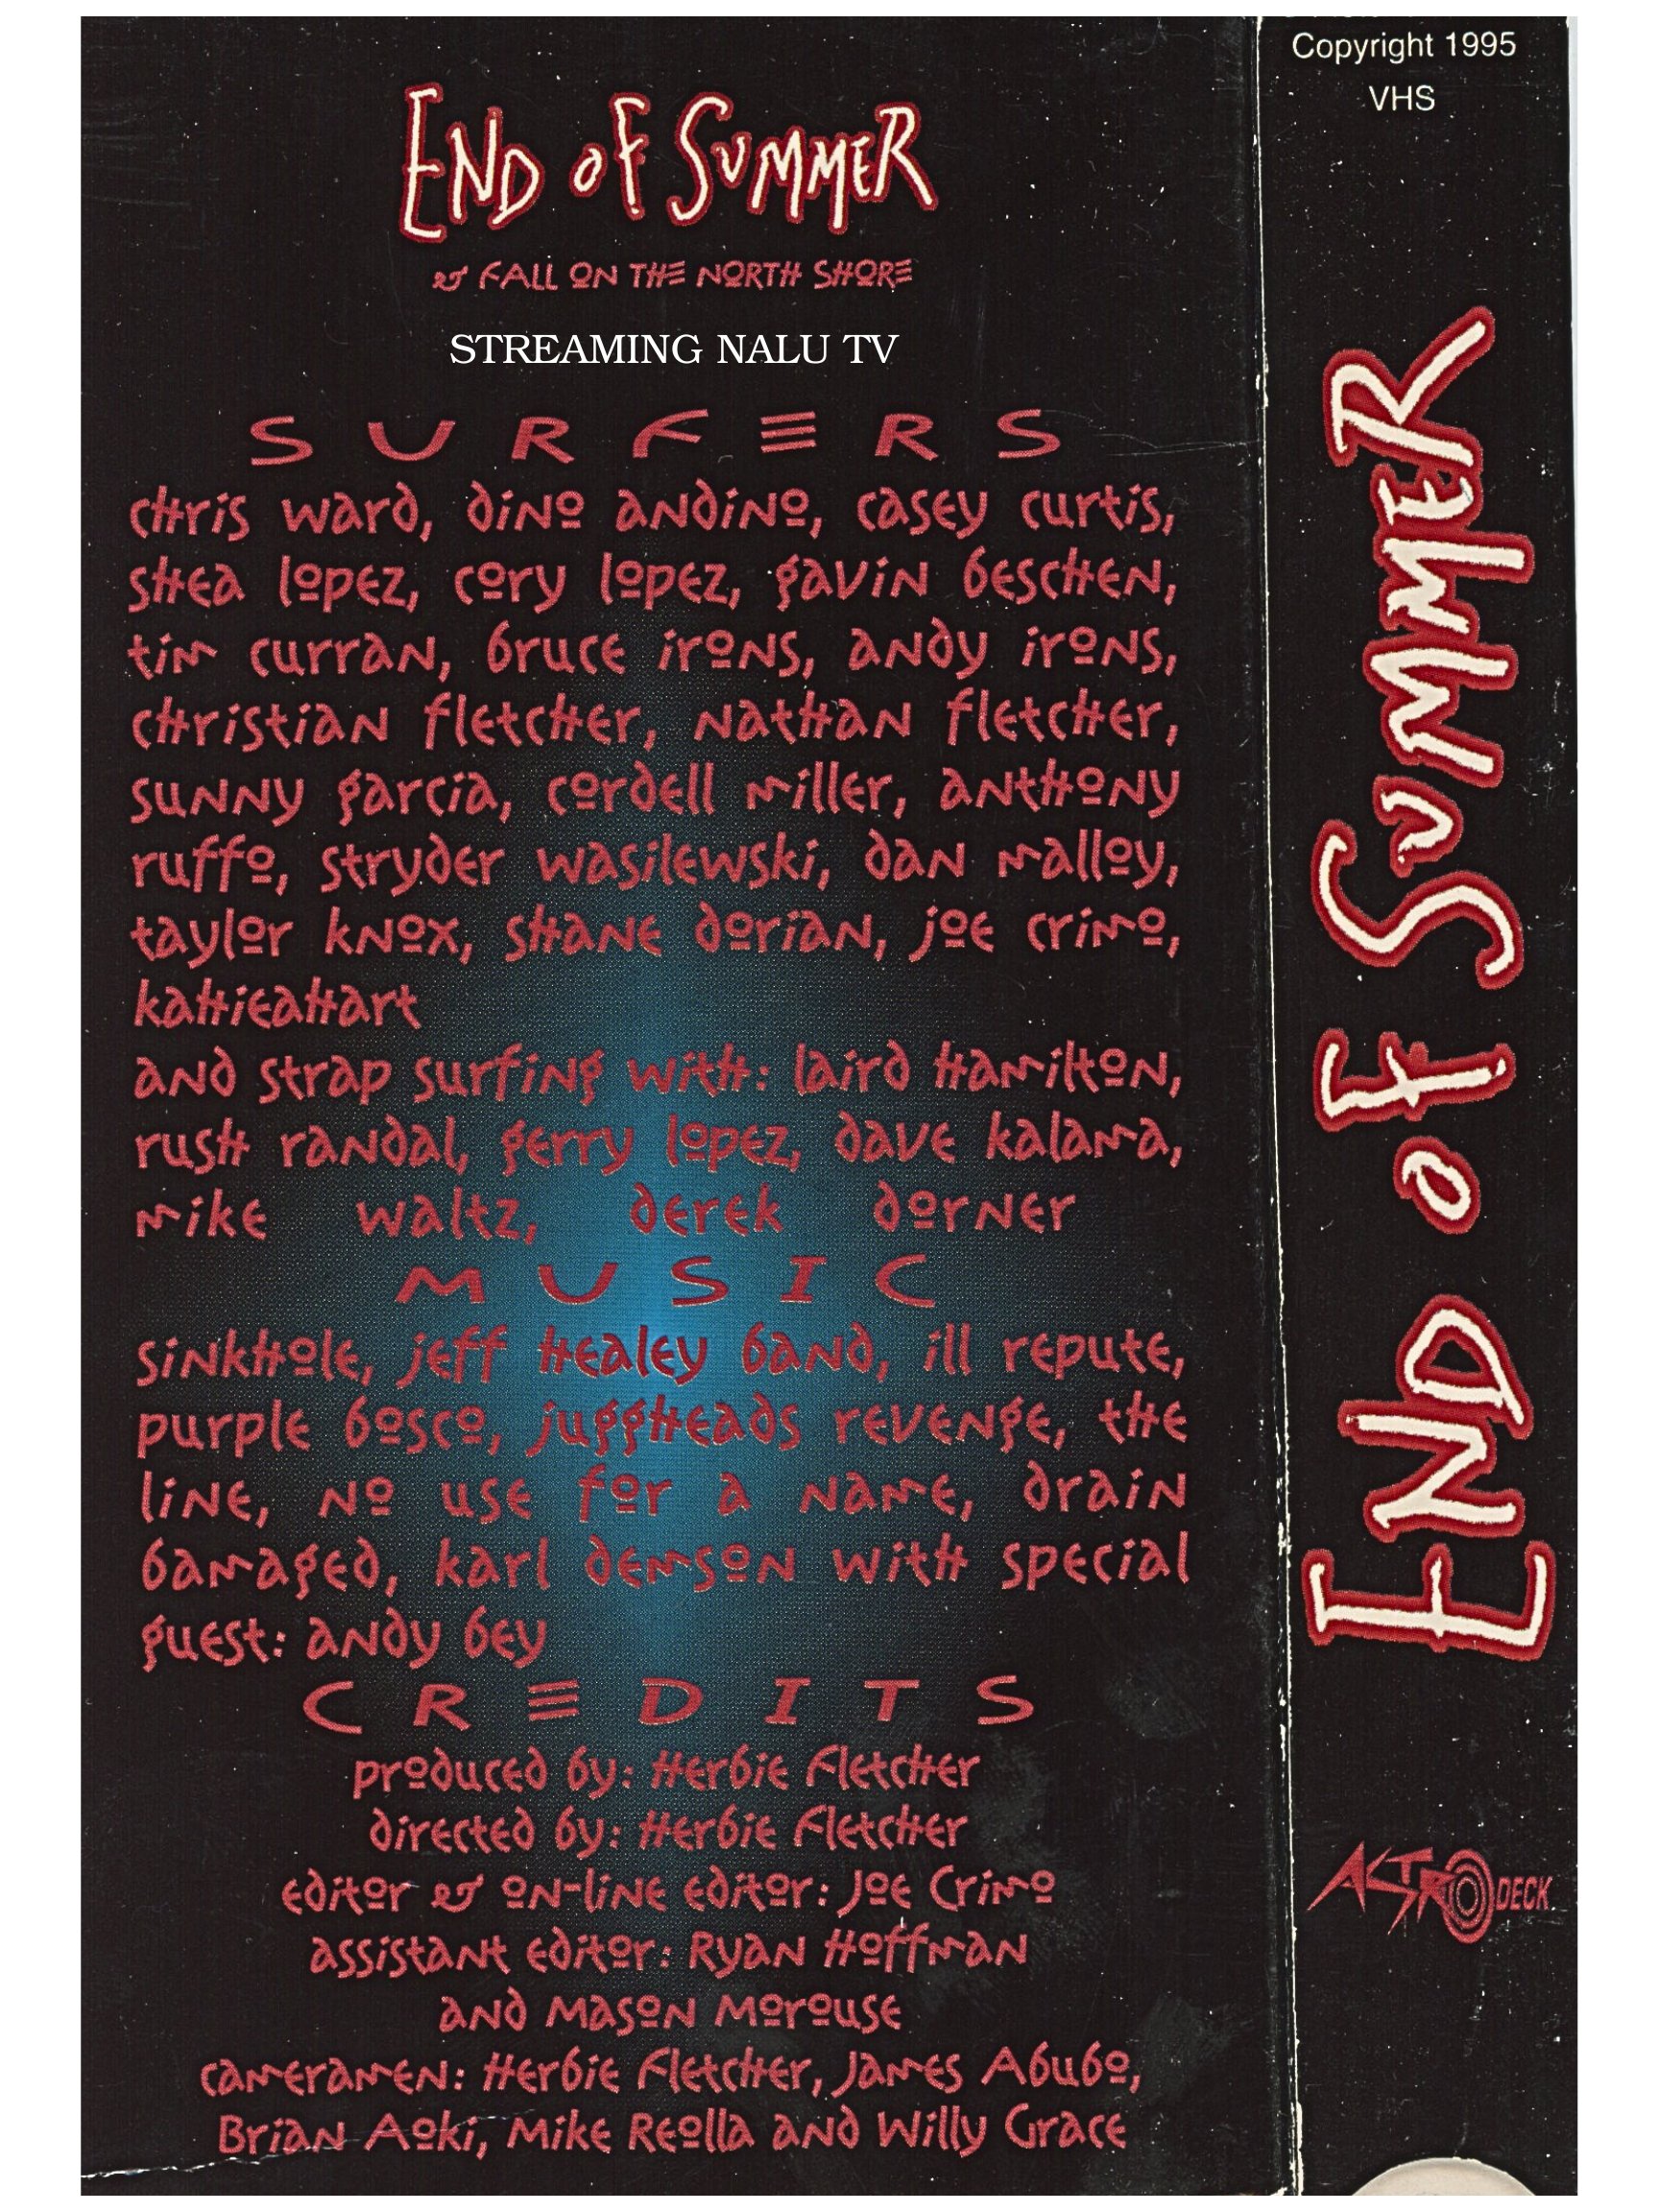 END OF SUMMER
& FALL ON THE NORTH SHORE
STREAMING NALU TV
SURFERS
chris ward, dino andino, casey curtis,
shea lopez, cory lopez, gavin beschen,
tim curran, bruce irons, andy irons,
christian fletcher, nathan fletcher,
sunny garcia, cordell miller, anthony
ruffo, stryder wasilewski, dan malloy,
taylor knox, shane dorian, joe crimo,
kahieahart
and strap surfing with: laird hamilton,
rush randal, gerry lopez, dave kalama,
mike waltz, derek dorner
MUSIC
sinkhole, jeff healey band, ill repute,
purple bosco, juggheads revenge, the
line, no use for a name, drain
bamaged, karl demson with special
guest: andy bey
CREDITS
produced by: Herbie Fletcher
directed by: Herbie Fletcher
editor & on-line editor: Joe Crimo
assistant editor: Ryan Hoffman
and Mason Morouse
cameramen: Herbie Fletcher, James Abubo,
Brian Aoki, Mike Reolla and Willy Grace
Copyright 1995
VHS
END OF SUMMER
ASTRO DECK